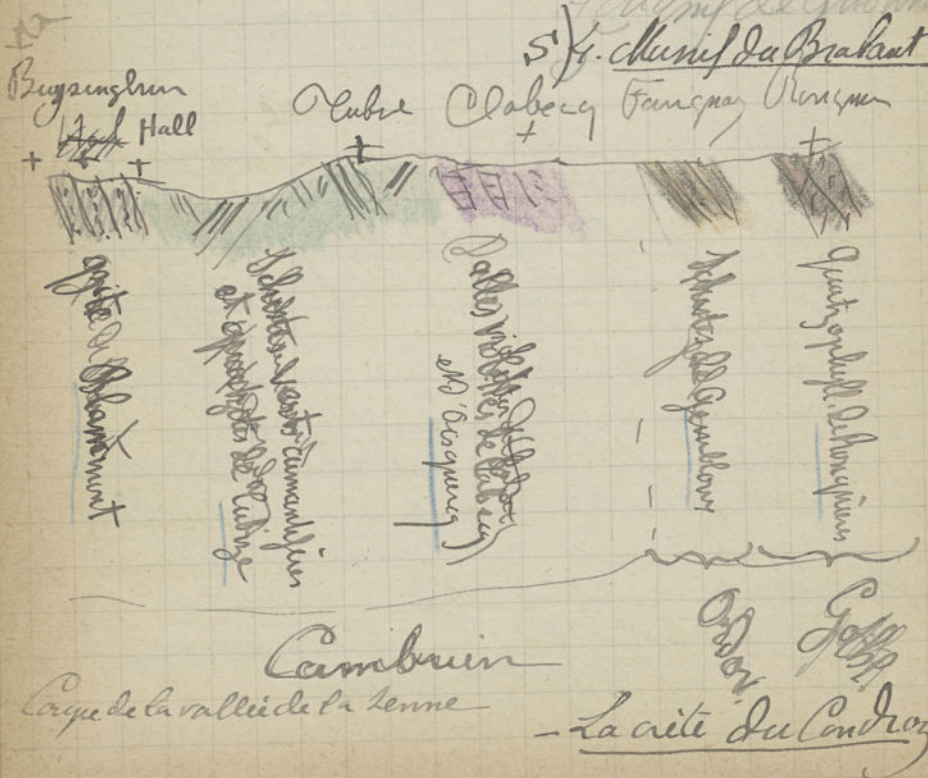 S) G. Massif du Brabant
Buysinghen
Hall
Tubize Clabecq Fauquez Ronquières
de Blanmont
Schistes verts aimantifères
et de Tubize
Dalles violettes
et d'Oisquercq
Schistes de Gembloux
Quartzophyll. de Ronquières
Cambrien
Ordov.
Goth.
Coupe de la vallée de la Senne
- La crête du Condroz